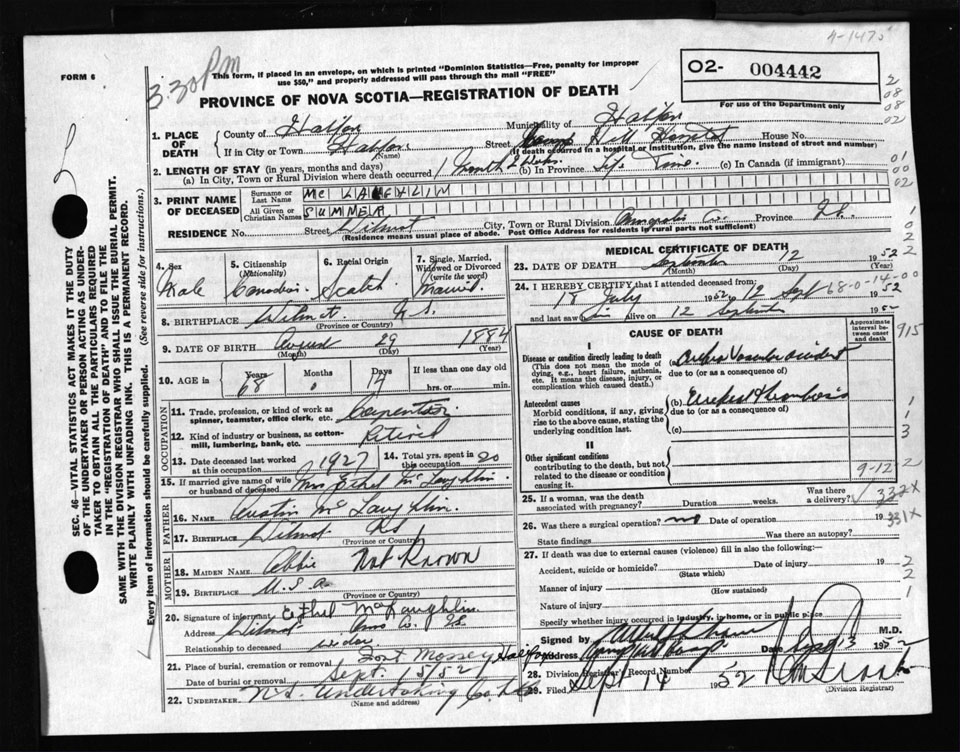 4-1475
FORM 6
3.30 PM
This form, if placed in an envelope, on which is printed "Dominion Statistics—Free, penalty for improper
use $50," and properly addressed will pass through the mail "FREE"
PROVINCE OF NOVA SCOTIA—REGISTRATION OF DEATH
O2- 004442
For use of the Department only
1. PLACE OF DEATH
County of Halifax Municipality of Halifax
If in City or Town Halifax (Name) Street Camp Hill Hospital House No.
(If death occurred in a hospital or institution, give the name instead of street and number)
2. LENGTH OF STAY (in years, months and days)
(a) In City, Town or Rural Division where death occurred 1 Month (b) In Province Life Time. (c) In Canada (if immigrant)
3. PRINT NAME OF DECEASED
Surname or Last Name McLAUGHLIN
All Given or Christian Names SUMNER
RESIDENCE No. Street Wilmot City, Town or Rural Division Annapolis Co. Province N.S.
(Residence means usual place of abode. Post Office Address for residents in rural parts not sufficient)
4. Sex Male
5. Citizenship (Nationality) Canadian
6. Racial Origin Scotch
7. Single, Married, Widowed or Divorced (write the word) Married
8. BIRTHPLACE Wilmot N.S.
(Province or Country)
9. DATE OF BIRTH August (Month) 29 (Day) 1884 (Year)
10. AGE in Years 68 Months 0 Days 14 If less than one day old hrs. or min.
OCCUPATION
11. Trade, profession, or kind of work as spinner, teamster, office clerk, etc. Carpenter
12. Kind of industry or business, as cotton-mill, lumbering, bank, etc. Retired
13. Date deceased last worked at this occupation 1927 14. Total yrs. spent in this occupation 20
15. If married give name of wife or husband of deceased Mrs Ethel McLaughlin.
FATHER
16. NAME Austin McLaughlin.
17. BIRTHPLACE Wilmot NS
(Province or Country)
MOTHER
18. MAIDEN NAME Abbie Not Known
19. BIRTHPLACE U.S.A.
(Province or Country)
20. Signature of informant Ethel McLaughlin.
Address Wilmot Ann Co. NS
Relationship to deceased widow
21. Place of burial, cremation or removal Fort Massey Halifax
Date of burial or removal Sept. 15/52
22. UNDERTAKER N.S. Undertaking Co. Ltd
(Name and address)
MEDICAL CERTIFICATE OF DEATH
23. DATE OF DEATH September (Month) 12 (Day) 1952 (Year)
24. I HEREBY CERTIFY that I attended deceased from:
18 July 1952 to 12 Sept 1952
and last saw him alive on 12 September 1952
68-0-14-00
CAUSE OF DEATH
Approximate interval between onset and death
I
Disease or condition directly leading to death
(This does not mean the mode of dying, e.g., heart failure, asthenia, etc. It means the disease, injury, or complication which caused death.)
(a) Cerebro Vascular accident
due to (or as a consequence of)
Antecedent causes
Morbid conditions, if any, giving rise to the above cause, stating the underlying condition last.
(b) Cerebral thrombosis
due to (or as a consequence of)
(c)
II
Other significant conditions
contributing to the death, but not related to the disease or condition causing it.
915
9-12
25. If a woman, was the death associated with pregnancy? Duration weeks. Was there a delivery?
332X
26. Was there a surgical operation? no Date of operation 19
331X
State findings Was there an autopsy?
27. If death was due to external causes (violence) fill in also the following:—
Accident, suicide or homicide? (State which) Date of injury 19
Manner of injury (How sustained)
Nature of injury
Specify whether injury occurred in industry, in home, or in public place
Signed by M.D.
Address Camp Hill Hosp Date Sept 13 1952
28. Division Registrar's Record Number
29. Filed Sept 14 1952
(Division Registrar)
SEC. 46—VITAL STATISTICS ACT MAKES IT THE DUTY
OF THE UNDERTAKER OR PERSON ACTING AS UNDERTAKER TO OBTAIN ALL THE PARTICULARS REQUIRED
IN THE "REGISTRATION OF DEATH" AND TO FILE THE
SAME WITH THE DIVISION REGISTRAR WHO SHALL ISSUE THE BURIAL PERMIT.
WRITE PLAINLY WITH UNFADING INK. THIS IS A PERMANENT RECORD.
Every item of information should be carefully supplied. (See reverse side for instructions.)